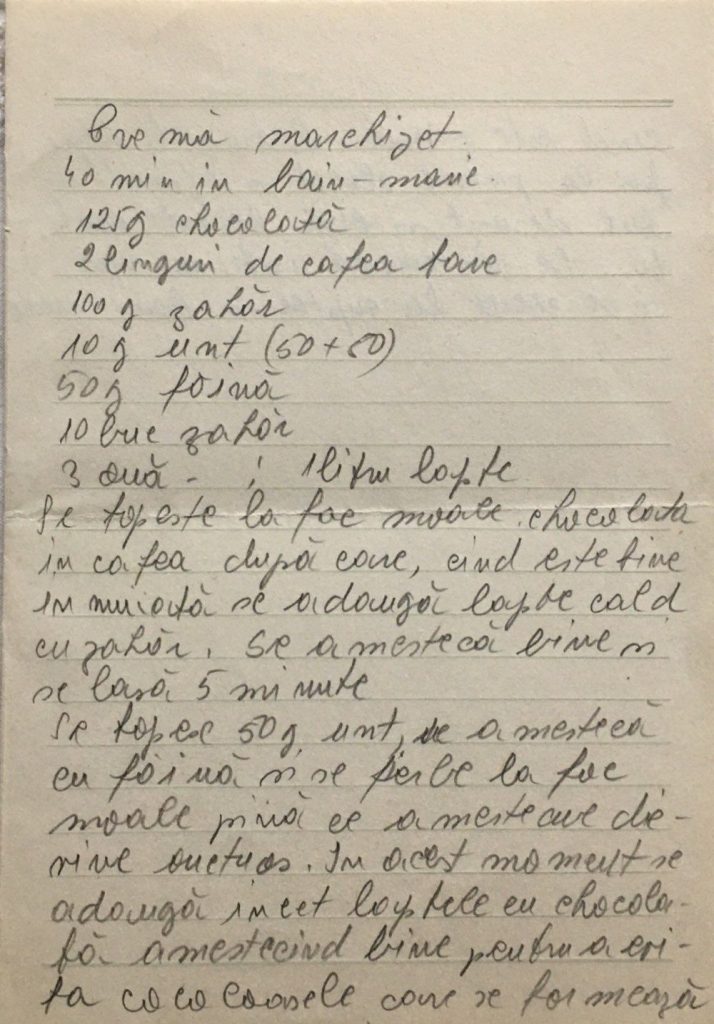 Cremă marchizet
40 min in bain-marie
125g chocolată
2 linguri de cafea tare
100 g zahăr
10 g unt (50+50)
50g făină
10 buc zahăr
3 ouă - ; 1 litru lapte
Se topeste la foc moale chocolata
in cafea după care, cind este bine
inmuiată se adaugă lapte cald
cu zahăr. Se amestecă bine si
se lasă 5 minute
Se topesc 50g unt, se amestecă
cu făină si se fierbe la foc
moale pină ce amestecul de-
vine onctuos. In acest moment se
adaugă incet laptele cu chocola-
tă amestecind bine pentru a evi-
ta cocoloasele care se formează